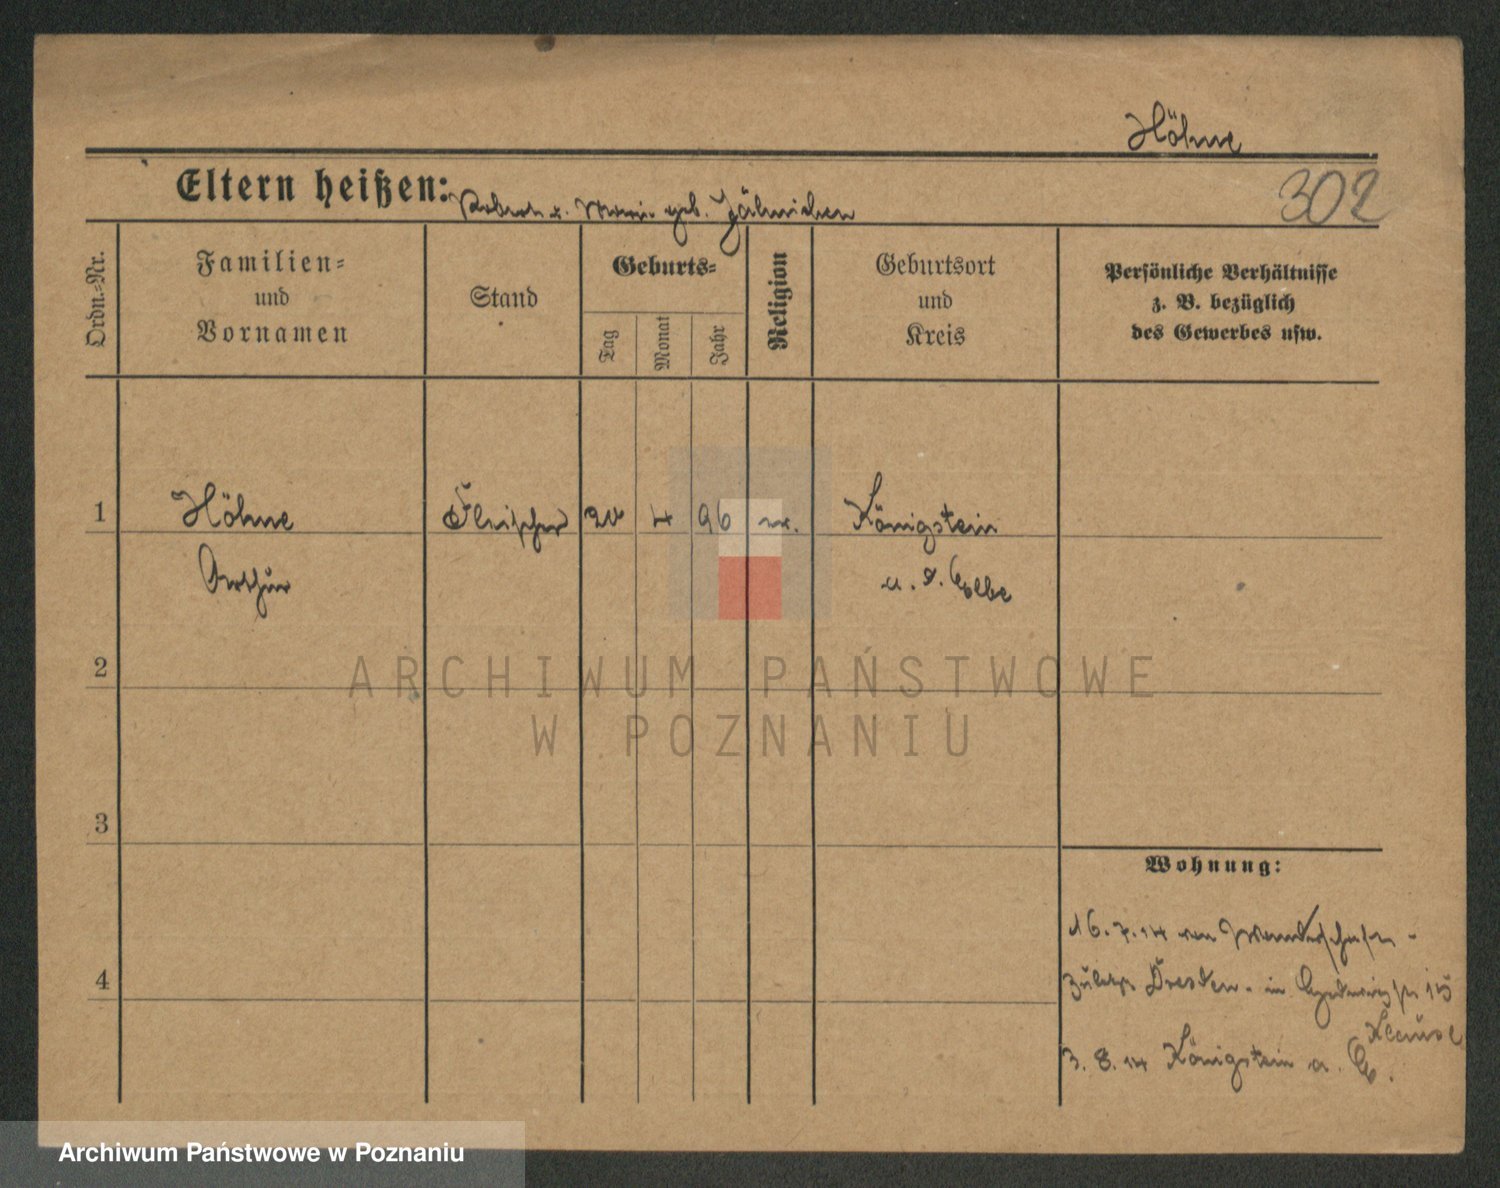 Höhne
302
Eltern heißen: Robert u. Marie geb. Jähnichen
Ordn.-Nr.
Familien-
und
Vornamen
Stand
Geburts-
Tag
Monat
Jahr
Religion
Geburtsort
und
Kreis
Persönliche Verhältnisse
z. B. bezüglich
des Gewerbes usw.
1
Höhne
Fleischer
20
4
96
ev.
Königstein
Arthur
a. d. Elbe
2
3
4
Wohnung:
16.7.14 von Wanderschaft -
zuletzt Dresden. in
15
Klause
3.8.14 Königstein a. E.
ARCHIWUM PAŃSTWOWE
W POZNANIU
Archiwum Państwowe w Poznaniu